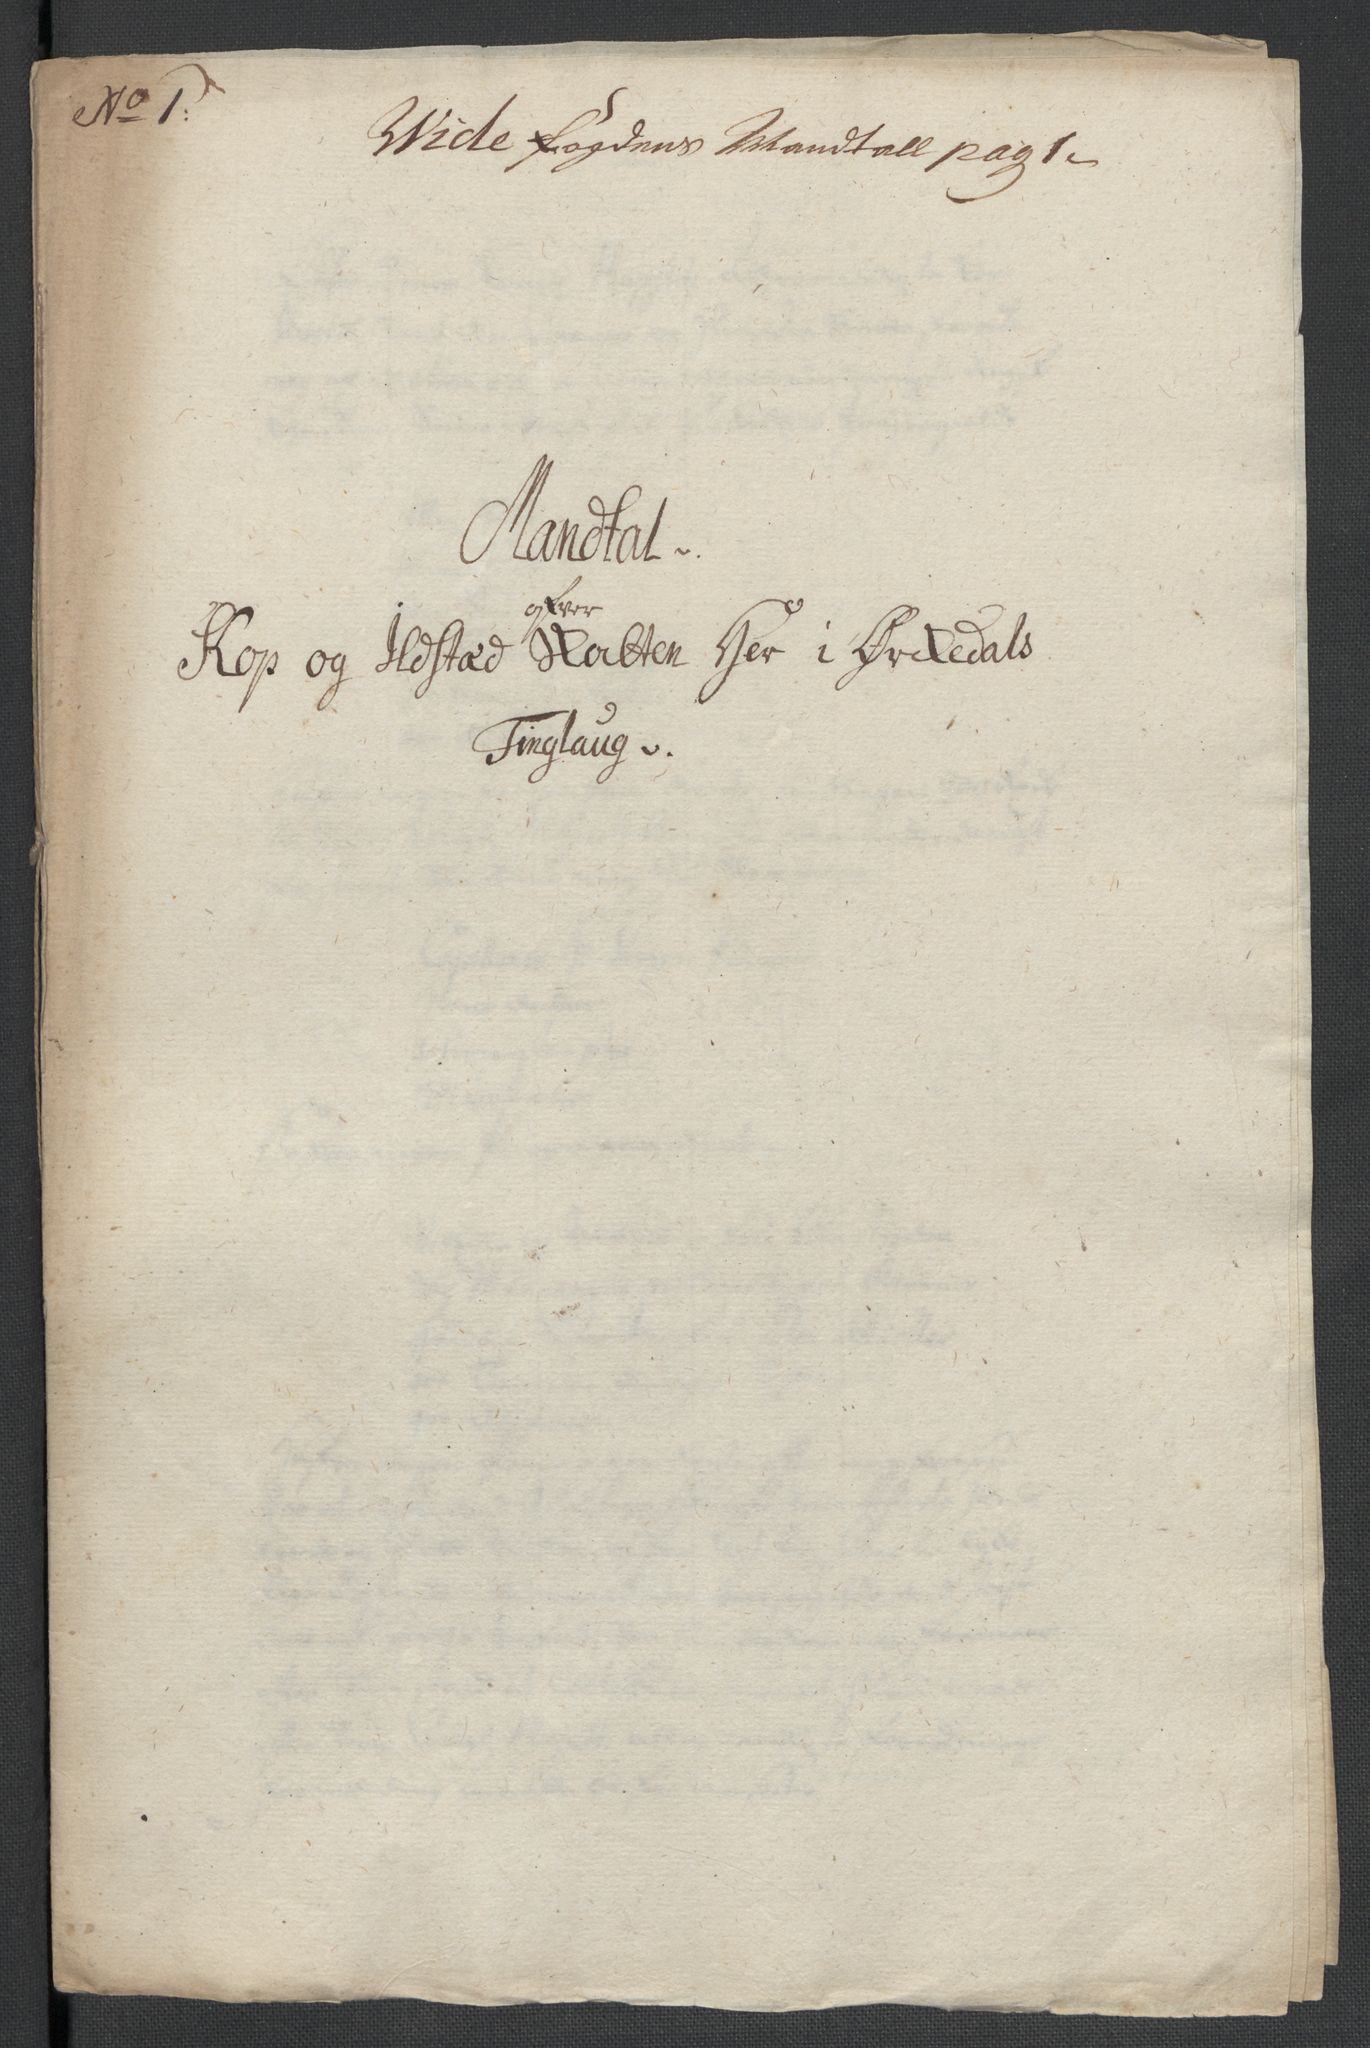 No 1.
Wide fogdens Mandtall pag 1.
Mandtal
ofver
Kop og Ildstæd Skatten Her i Ørkedals
Tinglaug